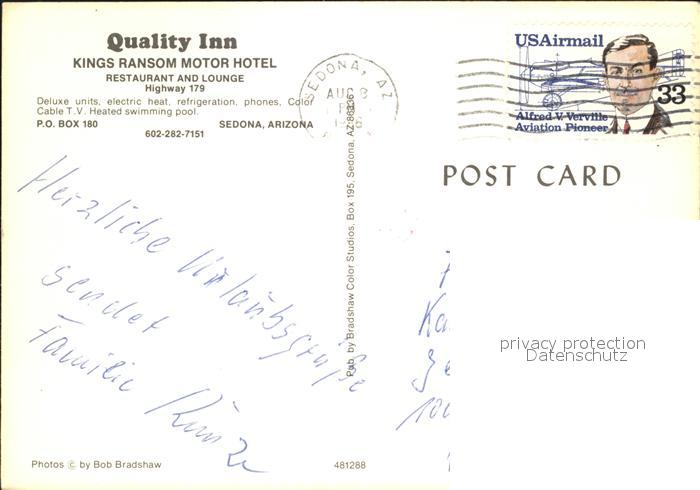 Quality Inn
KINGS RANSOM MOTOR HOTEL
RESTAURANT AND LOUNGE
Highway 179
Deluxe units, electric heat, refrigeration, phones, Color
Cable T.V. Heated swimming pool.
P.O. BOX 180 SEDONA, ARIZONA
602-282-7151
SEDONA, AZ
AUG 8
USAirmail
33
Alfred V. Verville
Aviation Pioneer
POST CARD
Herzliche Urlaubsgrüße
sendet
Familie
Pub. by Bradshaw Color Studios, Box 195, Sedona, AZ 86336
privacy protection
Datenschutz
Photos © by Bob Bradshaw
481288